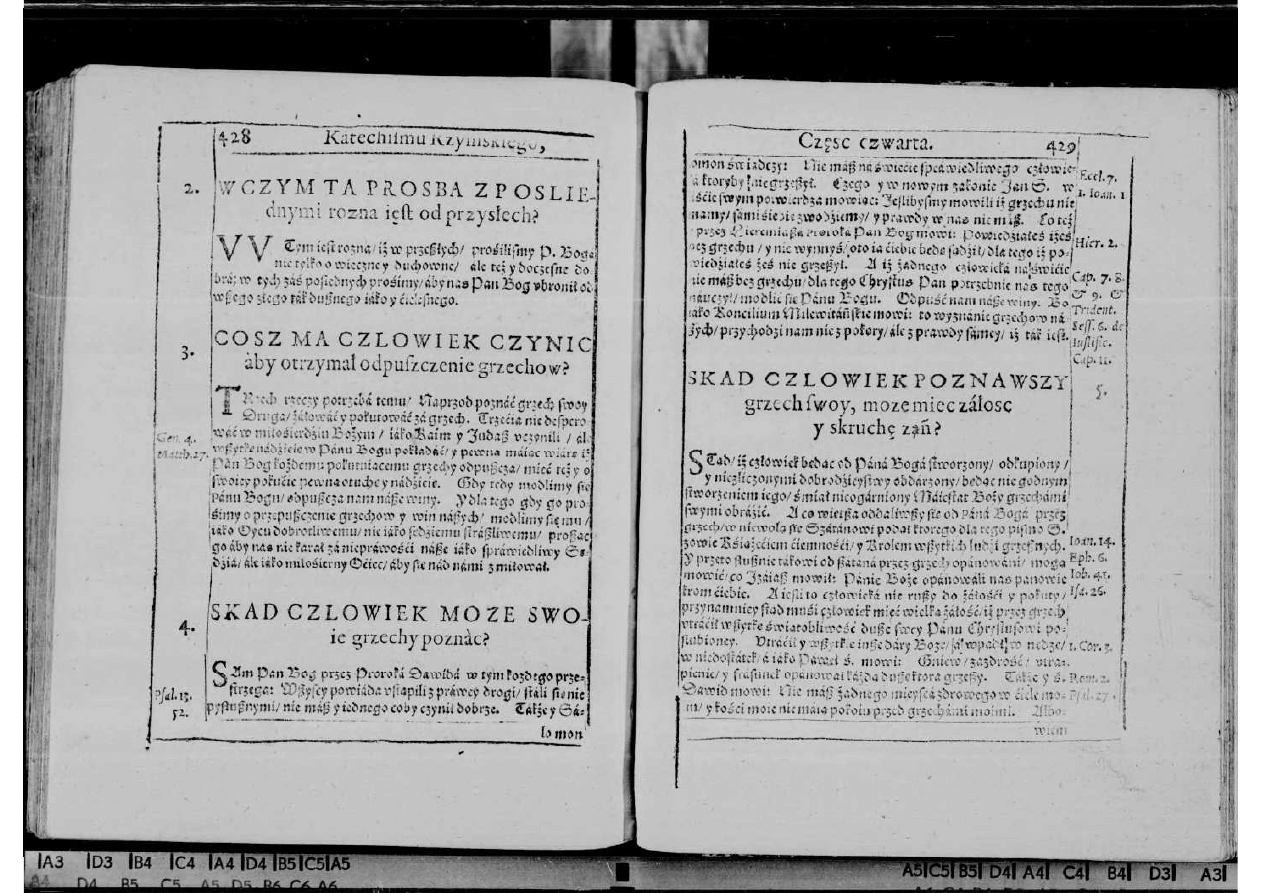 428 Katechismu Rzymskiego,
2. W CZYM TA PROSBA Z POSLIE-
dnymi rozna iest od przysłech?
W Tym iest rozna/ iż w przeszłych/ prosilismy P. Boga
nie tylko o wieczne y duchowne/ ale też y doczesne do
bra; w tych zás poslednych prosimy/ aby nas Pan Bog vbronił od
wszego złego ták dusznego iáko y ćielesnego.
3. COSZ MA CZLOWIEK CZYNIC
áby otrzymał odpuszczenie grzechow?
TRzech rzeczy potrzebá temu/ Naprzod poznáć grzech swoy
Druga/ żáłowáć y pokutowáć zá grzech. Trzećia nie despero
wáć w miłosierdziu Bożym/ iáko Kaim y Judasz vczynili/ ále
Gen. 4.
Matth. 27.
wszytkę nádzieię w Pánu Bogu pokłádáć/ y pewną máiąc wiárę iż
Pan Bog kożdemu pokutuiącemu grzechy odpuszcza/ mieć też y o
swoiey pokućie pewną otuchę y nádzieię. Gdy tedy modlimy się
Pánu Bogu/ odpuszcza nam násze winy. Y dla tego gdy go pro-
śimy o przepuszczenie grzechow y win nászych/ modlimy się mu/
iáko Oycu dobrotliwemu/ nie iáko sędziemu strászliwemu/ prosząc
go áby nas nie karał zá niepráwośći násze iáko spráwiedliwy Sę-
dzia/ ále iáko miłosierny Oćiec/ áby się nád námi zmiłował.
4. SKAD CZLOWIEK MOZE SWO-
ie grzechy poznác?
SAm Pan Bog przez Proroká Dawidá w tym kożdego prze-
strzega: Wszyscy powiáda vstąpili z práwey drogi/ stáli się nie
Psal. 13.
52.
pystusznymi/ nie mász y iednego coby czynił dobrze. Tákże y Sá-
lomon
Częsc czwarta. 429
omon świadczy: Nie mász ná świecie spráwiedliwego człowie-
á ktoryby nie grzeszył. Czego y w nowym zakonie Jan S. w
Eccl. 7.
1. Ioan. 1
iście swym potwierdza mowiąc: Jeslibysmy mowili iż grzechu nie
mamy/ sámi siebie zwodzimy/ y prawdy w nas nie mász. Co też
przez Hieremiaszá Proroká Pan Bog mowi: Powiedziáłeś iżeś
Hier. 2.
bez grzechu/ y nie wynnyś/ oto ia ćiebie będę sądził/ dla tego iż po-
wiedziałeś żeś nie grzeszył. A iż żadnego człowieká ná świećie
nie mász bez grzechu/ dla tego Chrystus Pan potrzebnie nas tego
Cap. 7. 8.
& 9. &
náuczył/ modlić się Pánu Bogu. Odpuść nam násze winy. Bo
iáko Koncilium Milewitáńskie mowi: to wyznánie grzechow ná
Trident.
Sess. 6. de
szych/ przychodzi nam nie z pokory/ ále z prawdy sámey/ iż ták iest.
Iustific.
Cap. 11.
SKAD CZLOWIEK POZNAWSZY
5.
grzech swoy, moze miec záłosc
y skruchę zań?
STąd/ iż człowiek będąc od Páná Bogá stworzony/ odkupiony/
y niezliczonymi dobrodzieystwy obdárzony/ będąc niegodnym
stworzeniem iego/ śmiał nieogárniony Máiestat Boży grzechámi
swymi obráźić. A co więtsza oddaliwszy się od Páná Bogá przez
grzech/ w niewolą się Szátanowi podał ktorego dla tego pismo S.
zowie Książęćiem ćiemnośći/ y Krolem wszytkich ludzi grzesznych.
Ioan. 14.
Y przeto słusznie tákowi od szátaná przez grzech opánowáni/ mogą
Eph. 6.
mowić/ co Izáiasz mowił: Pánie Boże opánowáli nas panowie
Iob. 41.
krom ćiebie. A iesli to człowieká nie ruszy do żáłośći y pokuty/
Isa. 26.
przynamniey stąd muśi człowiek mieć wielką żáłość/ iż przez grzech
vtráćił wszytkę świątobliwość dusze swey Pánu Chrystusowi po-
slubioney. Vtráćił y wszytkie insze dáry Boże/ á wpadł w nędzę/
1. Cor. 3.
w niedostátek/ á iáko Páweł ś. mowi: Gniew/ zazdrość/ vtra-
pienie/ y frásunek opánował káżdą duszę ktora grzeszy. Tákże y ś.
Rom. 2.
Dawid mowi: Nie mász żadnego mieyscá zdrowego w ćiele mo-
Psal. 37.
im/ y kośći moie nie máią pokoiu przed grzechámi moimi. Albo-
wiem
A3 D3 B4 C4 A4 D4 B5 C5 A5
A4 D4 B5 C5 A5 D5 B6 C6 A6
A5 C5 B5 D4 A4 C4 B4 D3 A3